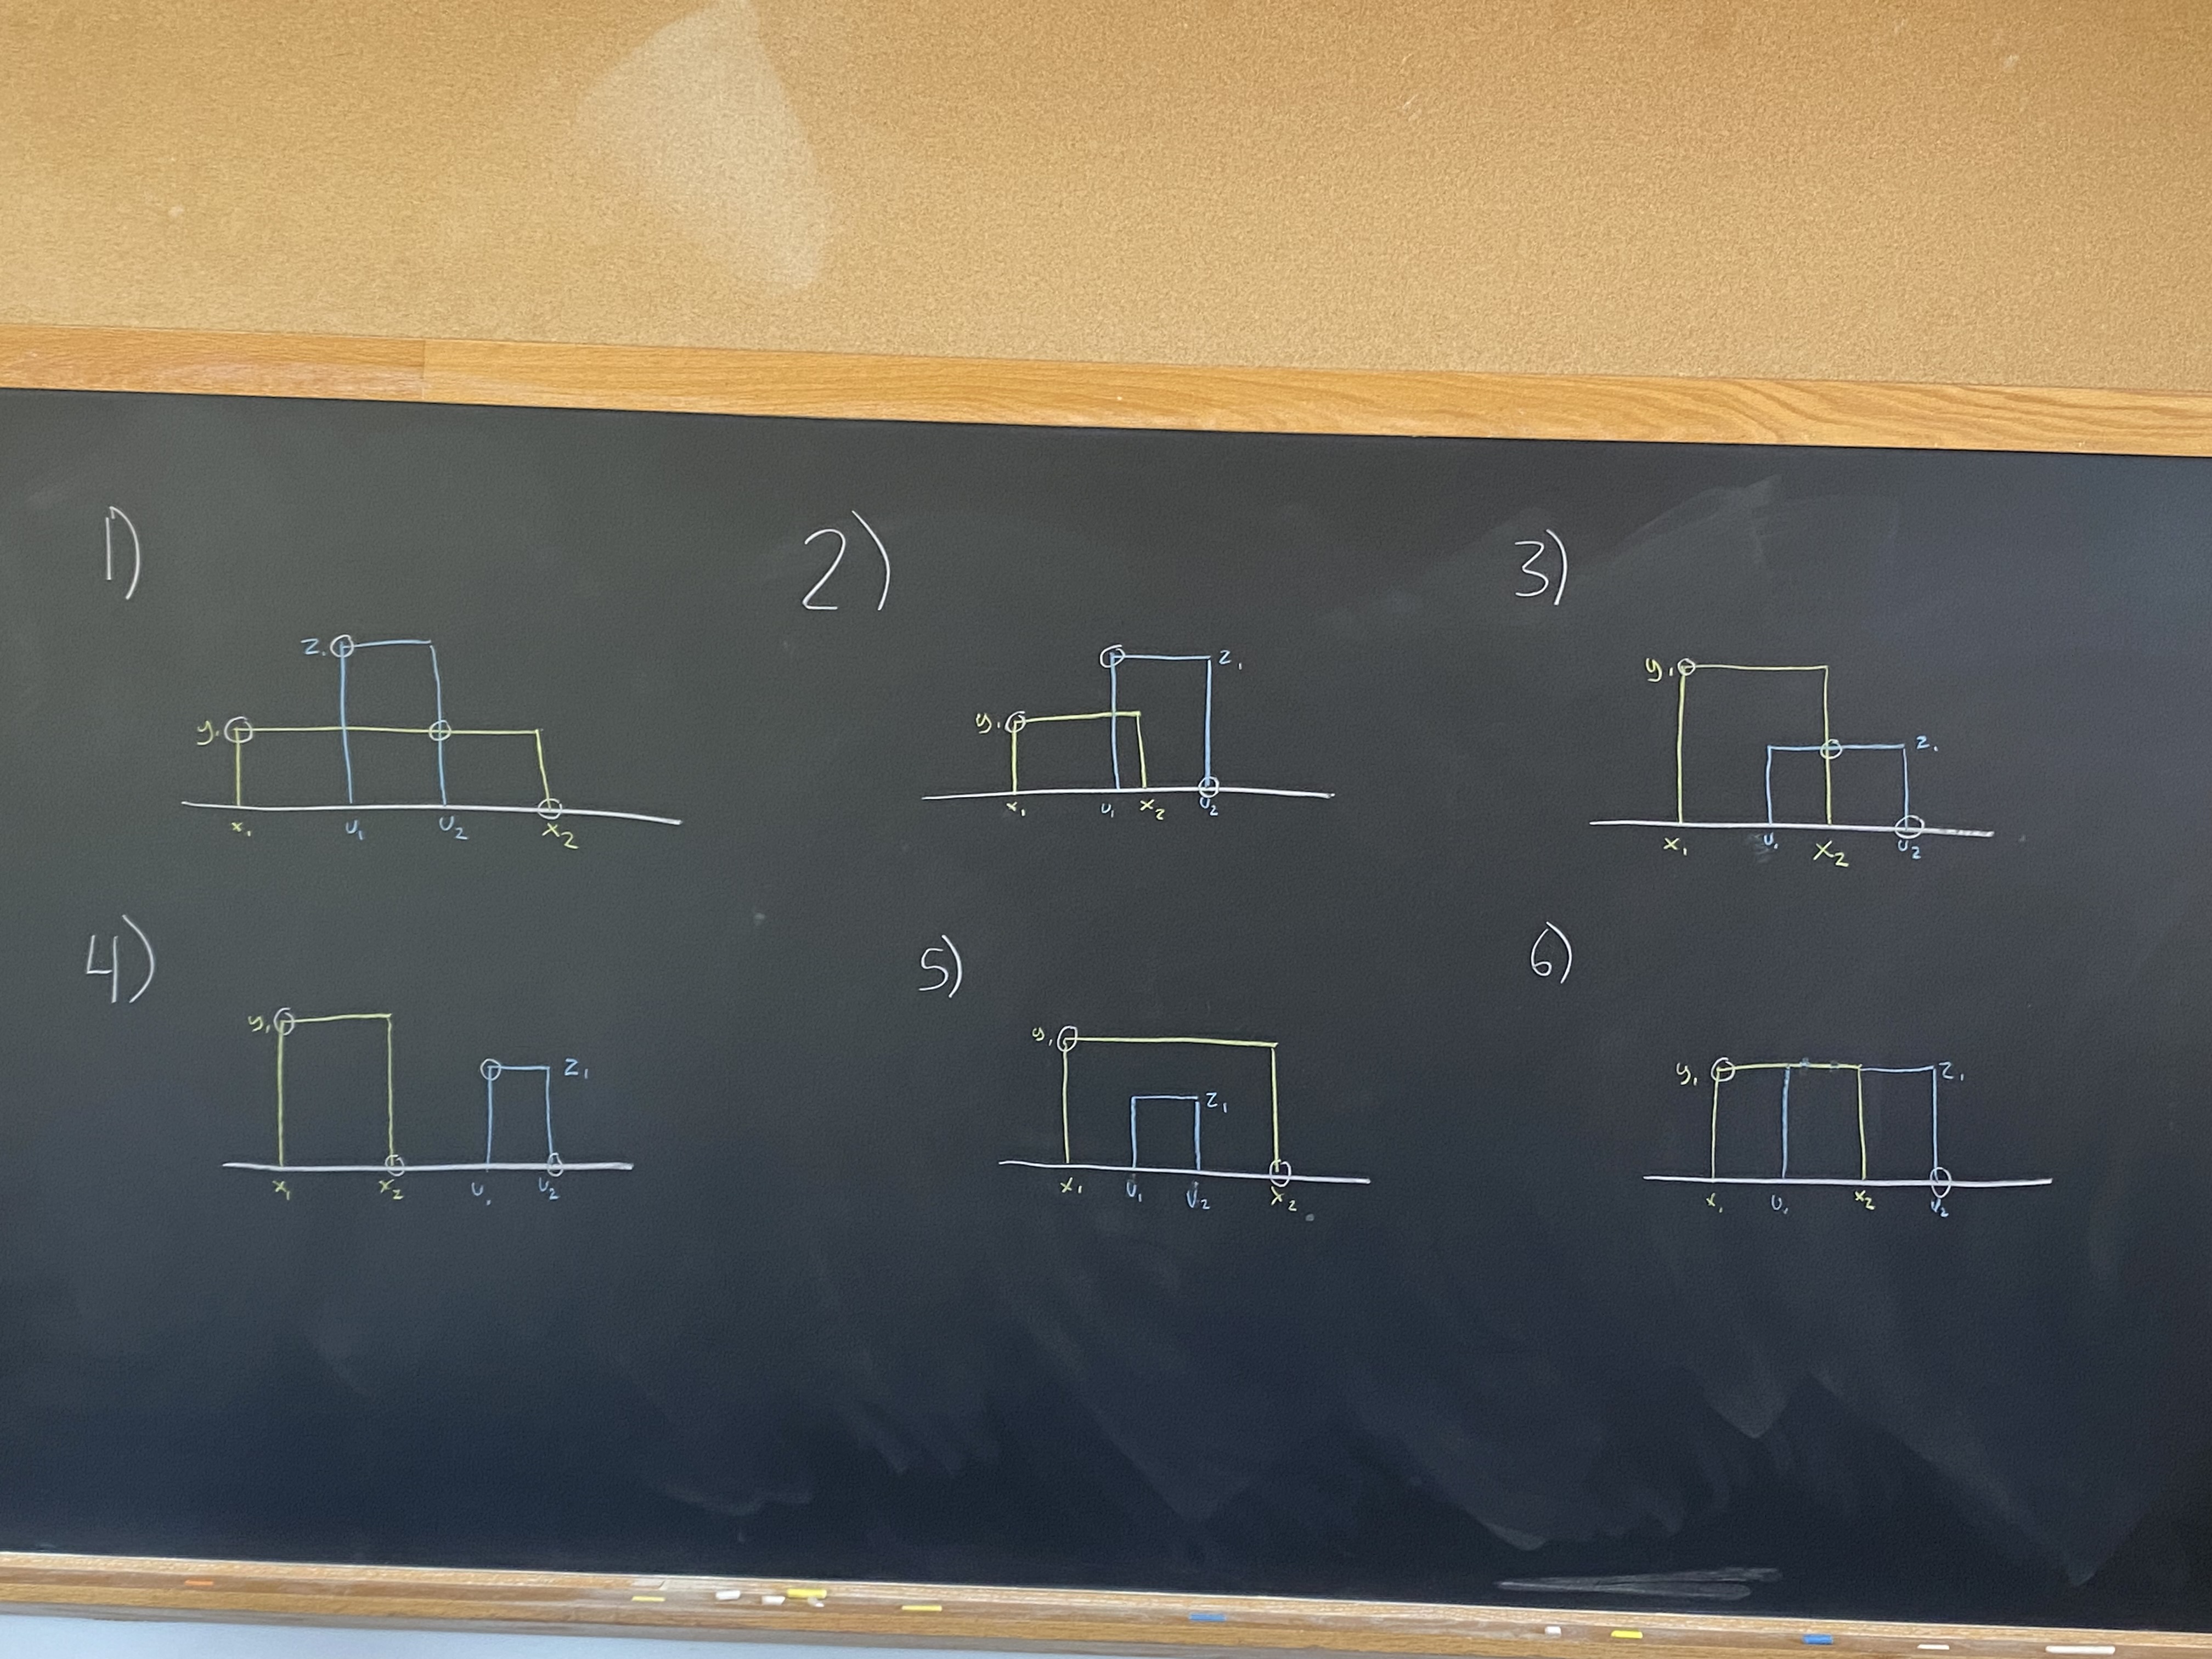 1)
z₁
y₁
x₁ u₁ u₂ x₂
2)
z₁
y₁
x₁ u₁ x₂ u₂
3)
y₁
z₁
x₁ u₁ x₂ u₂
4)
y₁
z₁
x₁ x₂ u₁ u₂
5)
y₁
z₁
x₁ u₁ u₂ x₂
6)
y₁ z₁
x₁ u₁ x₂ u₂